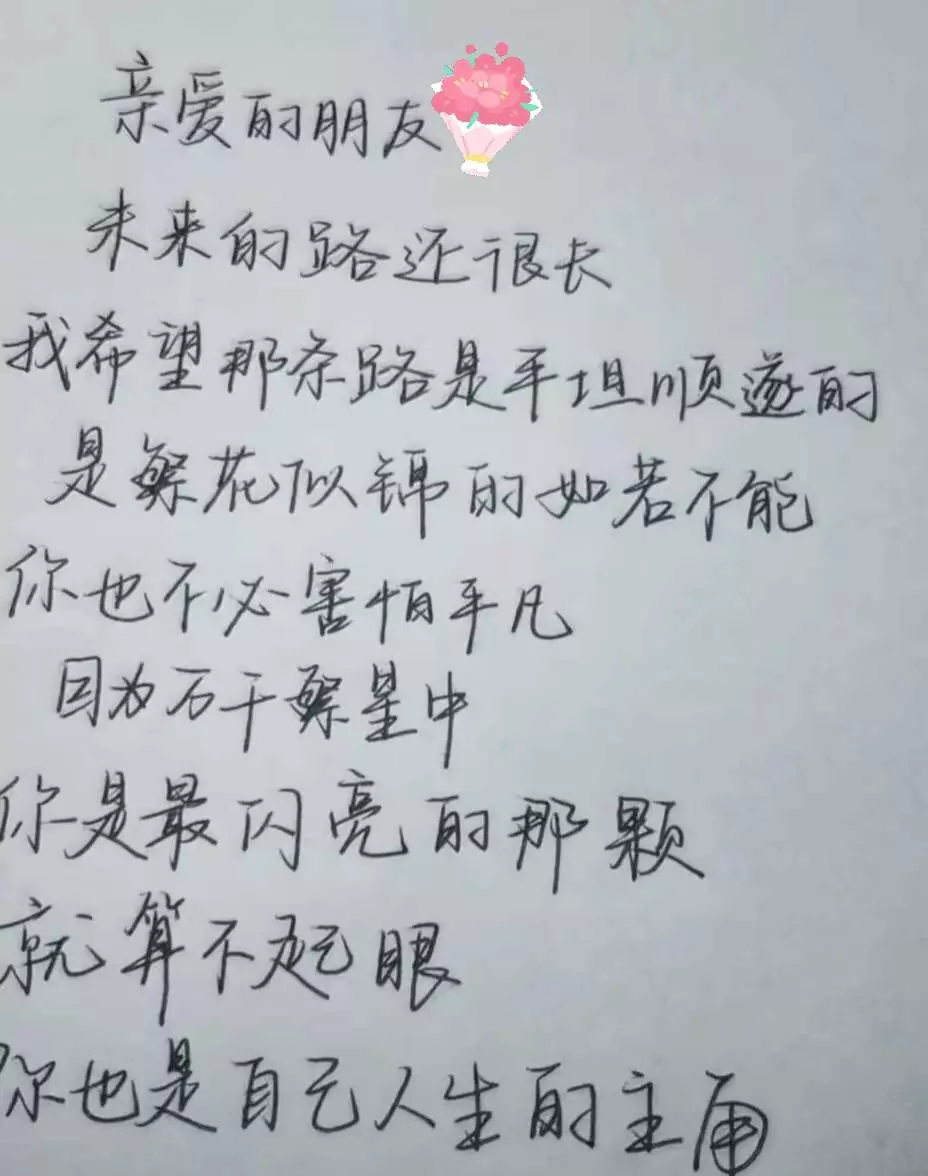 亲爱的朋友
未来的路还很长
我希望那条路是平坦顺遂的
是繁花似锦的如若不能
你也不必害怕平凡
因为万千繁星中
你是最闪亮的那颗
就算不起眼
你也是自己人生的主角